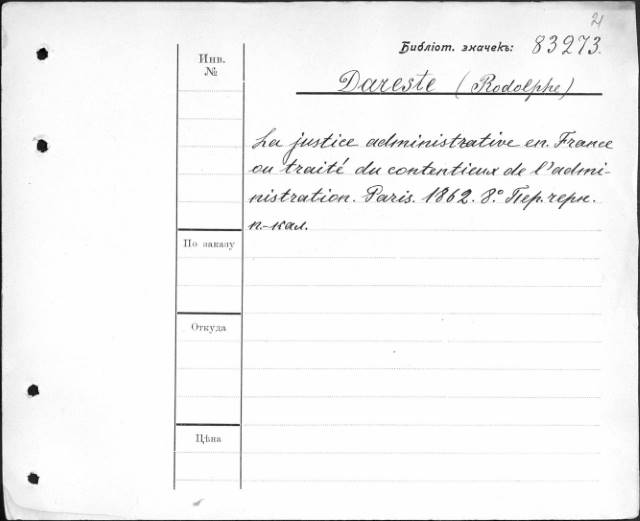 21
Библіот. значекъ: 83273.
Инв.
№
Dareste (Rodolphe)
La justice administrative en France
ou traité du contentieux de l'admi-
nistration. Paris. 1862. 8.° Пер. черн.
п.-кал.
По заказу
Откуда
Цѣна